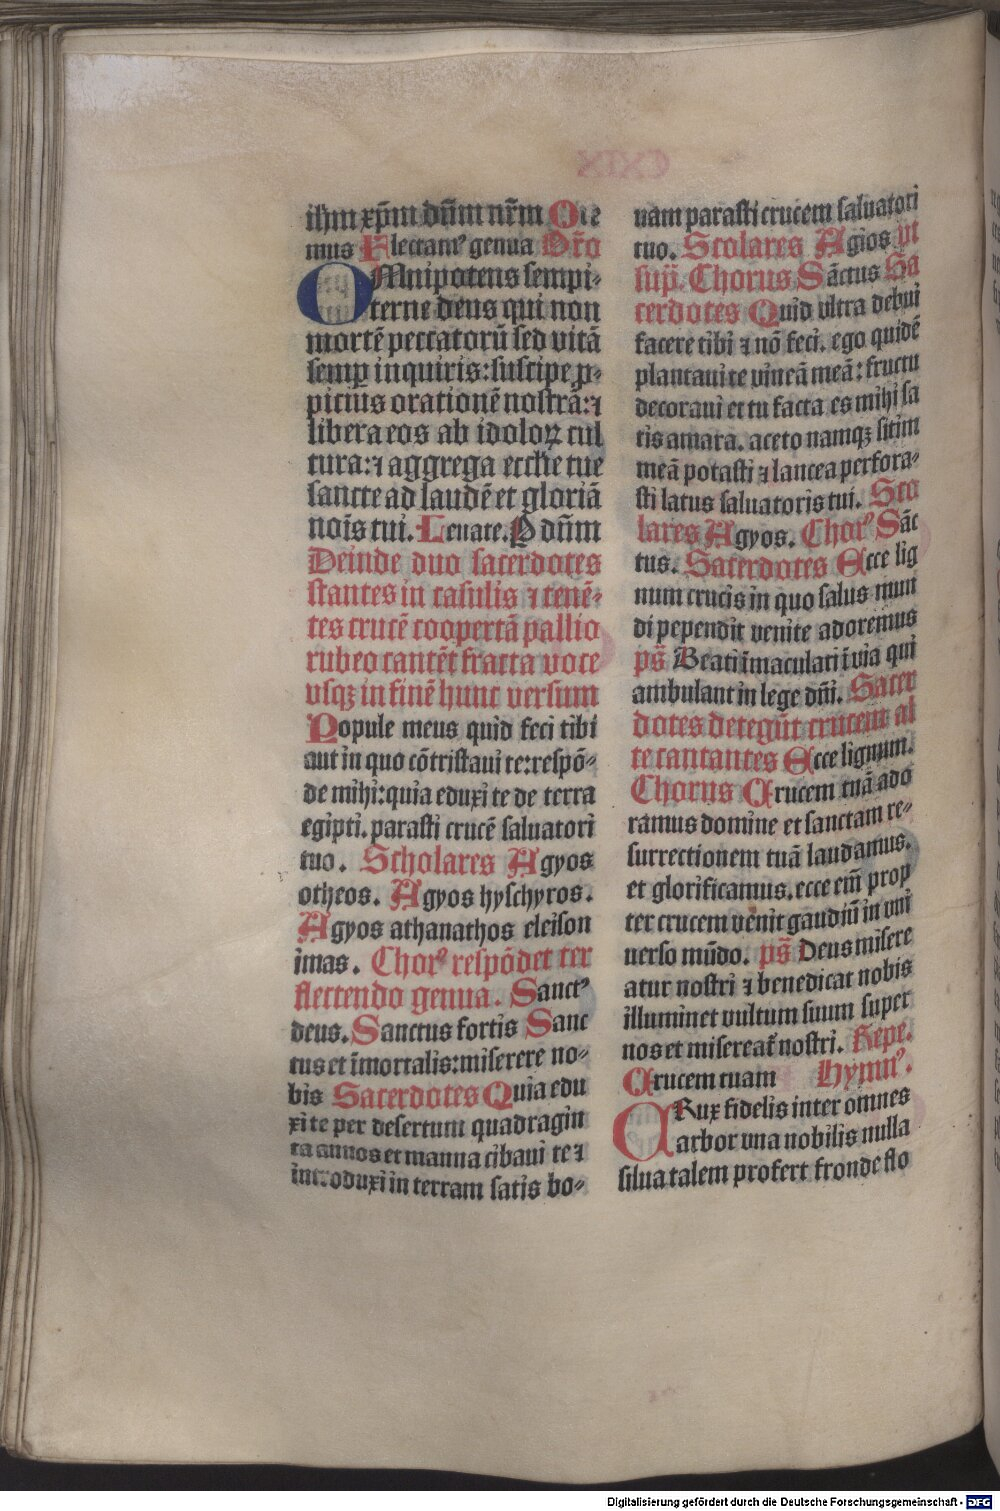 ihm xp̄m dn̄m nr̄m Ore
mus Flectam⁹ genua Or̄o
OMnipotens sempi-
terne deus qui non
mortē peccatorū sed vitā
semꝑ inquiris: suscipe ꝓ-
picius orationē nostrā: ⁊
libera eos ab idoloꝝ cul
tura: ⁊ aggrega eccłie tue
sancte ad laudē et gloriā
nois̄ tui. Leuate. P dn̄m
Deinde duo sacerdotes
stantes in casulis ⁊ tenē-
tes crucē coopertā pallio
rubeo cantēt fracta voce
vsqꝫ in finē hunc versum
Popule meus quid feci tibi
aut in quo cōtristaui te: respō-
de mihi: quia eduxi te de terra
egipti. parasti crucē saluatori
tuo. Scholares Agyos
otheos. Agyos hyschyros.
Agyos athanathos eleison
imas. Chor⁹ respōdet ter
flectendo genua. Sanct⁹
deus. Sanctus fortis Sanc
tus et īmortalis: miserere no-
bis Sacerdotes Quia edu
xi te per desertum quadragin
ta annos et manna cibaui te ⁊
introduxi in terram satis bo-
nam parasti crucem saluatori
tuo. Scolares Agios vt
sup̄. Chorus Sāctus Sa
cerdotes Quid vltra debui
facere tibi ⁊ nō feci. ego quidē
plantaui te vineā meā: fructu
decoraui et tu facta es mihi sa
tis amara. aceto namqꝫ sitim
meā potasti ⁊ lancea perfora-
sti latus saluatoris tui. Sco
lares Agyos. Chor⁹ Sāc
tus. Sacerdotes Ecce lig
num crucis in quo salus mun
di pependit venite adoremus
ps̄ Beati īmaculati ī via qui
ambulant in lege dn̄i. Sacer
dotes detegūt crucem al
te cantantes Ecce lignum.
Chorus Crucem tuā ado
ramus domine et sanctam re-
surrectionem tuā laudamus.
et glorificamus. ecce em̄ prop
ter crucem venit gaudiū in vni
uerso mūdo. ps̄ Deus misere
atur nostri ⁊ benedicat nobis
illuminet vultum suum super
nos et misereat᷑ nostri. Repe.
Crucem tuam Hymn⁹.
CRux fidelis inter omnes
arbor vna nobilis nulla
silua talem profert fronde flo
Digitalisierung gefördert durch die Deutsche Forschungsgemeinschaft - DFG